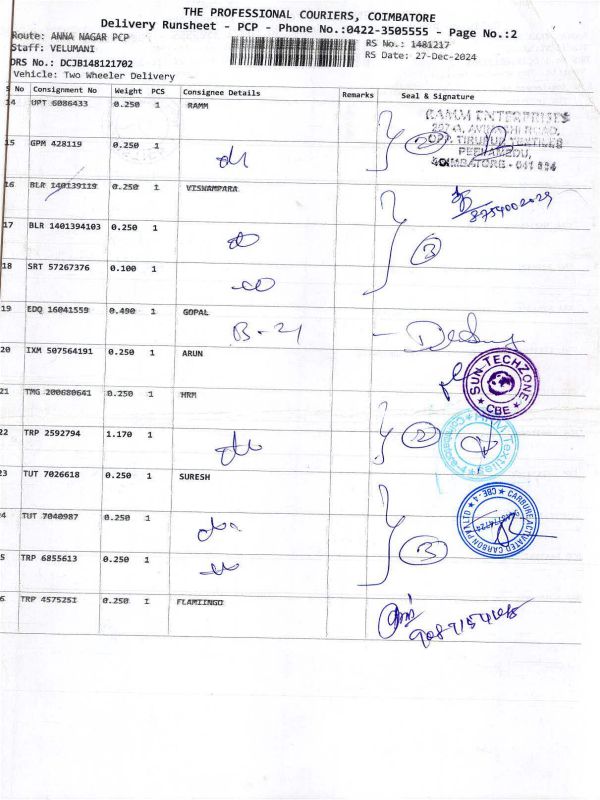 THE PROFESSIONAL COURIERS, COIMBATORE
Delivery Runsheet - PCP - Phone No.:0422-3505555 - Page No.:2
Route: ANNA NAGAR PCP
RS No.: 1481217
Staff: VELUMANI
RS Date: 27-Dec-2024
DRS No.: DCJB148121702
Vehicle: Two Wheeler Delivery
S No Consignment No Weight PCS Consignee Details Remarks Seal & Signature
14 UPT 6086433 0.250 1 RAMM
RAMM ENTERPRISES
OPP.
PEELAMEDU,
COIMBATORE - 641 004
15 GPM 428119 0.250 1 2
16 BLR 140139119 0.250 1 VISWAMPARA
8754002029
17 BLR 1401394103 0.250 1 3
18 SRT 57267376 0.100 1
19 EDQ 16041559 0.490 1 GOPAL
B-21
20 IXM 507564191 0.250 1 ARUN
SUN TECHZONE
CBE
21 TMG 200680641 0.250 1 HRM
HRM Textiles
Coimbatore
22 TRP 2592794 1.170 1 2
23 TUT 7026618 0.250 1 SURESH
CARBURE ACTIVATED CARBON PVT LTD CBE-4
24 TUT 7040987 0.250 1
5 TRP 6855613 0.250 1 3
6 TRP 4575251 0.250 1 FLAMIINGO